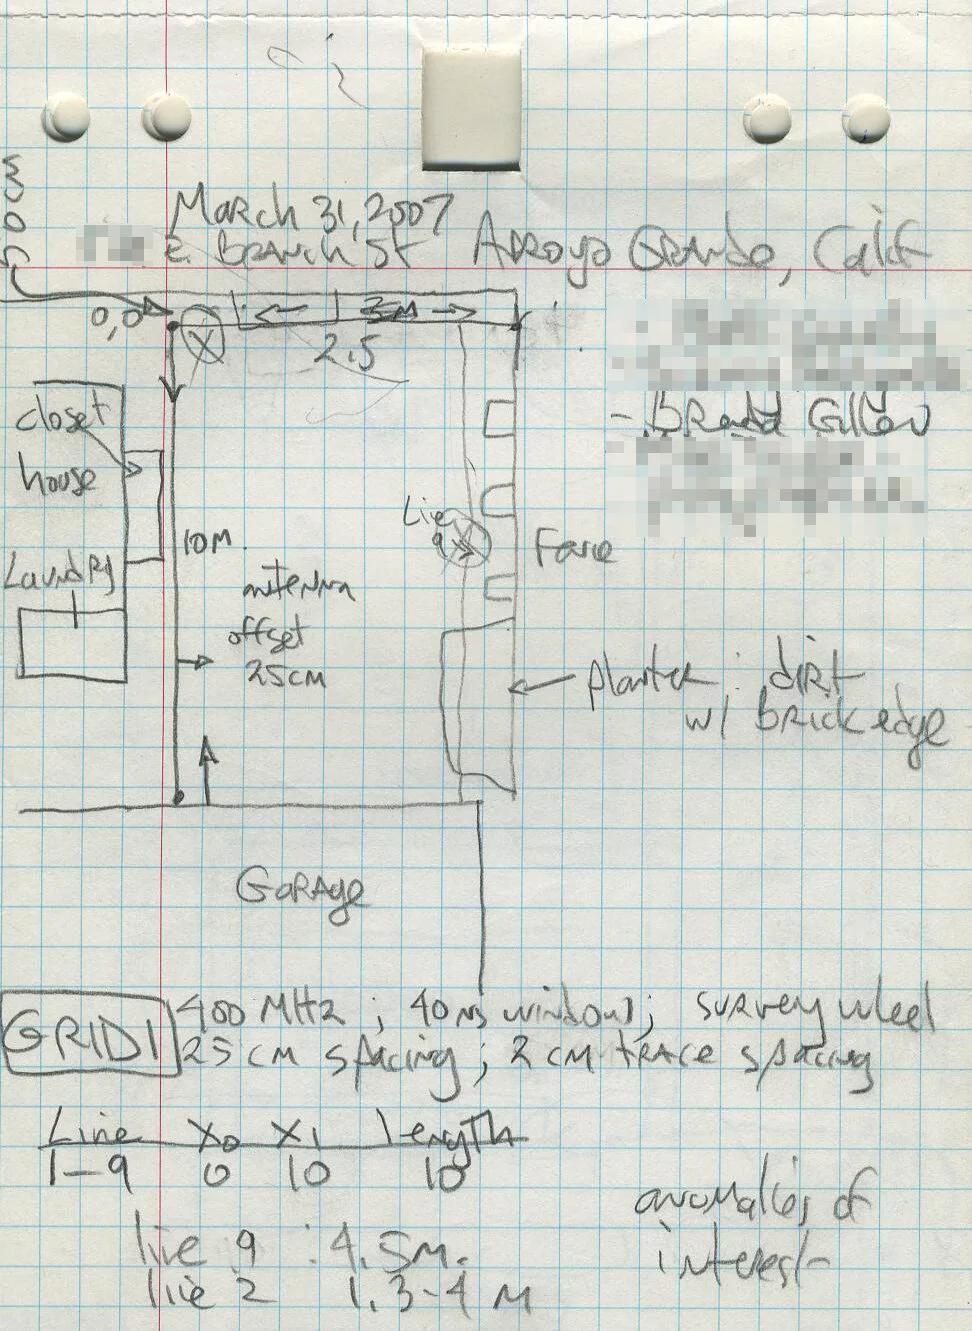 March 31, 2007
E. Branch St Arroyo Grande, Calif
0,0
3M
2.5
X
closet
house
10M
Line
9
Fence
Laundry
antenna
offset
25cm
planter: dirt
w/ brick edge
Garage
GRID1
400 MHz; 40 ns window; survey wheel
25 cm spacing; 2 cm trace spacing
Line X0 X1 length
1-9 0 10 10
anomalies of
interest
line 9 : 4.5M.
line 2 1.3-4 M